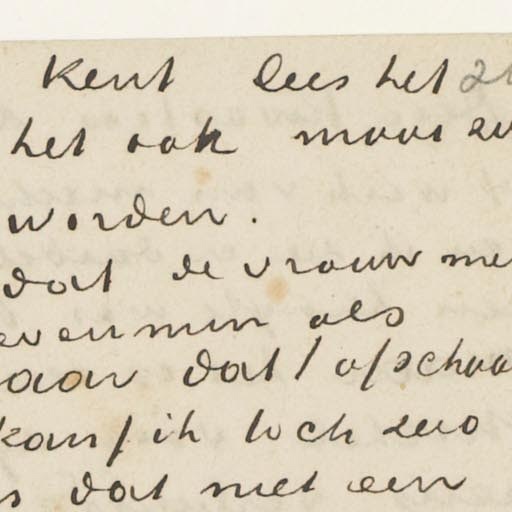 kent lees het
het ook maar zo
worden.
dat de vrouw me
evenmin als
aar dat / ofschoo
kan / ik toch zoo
s dat met een